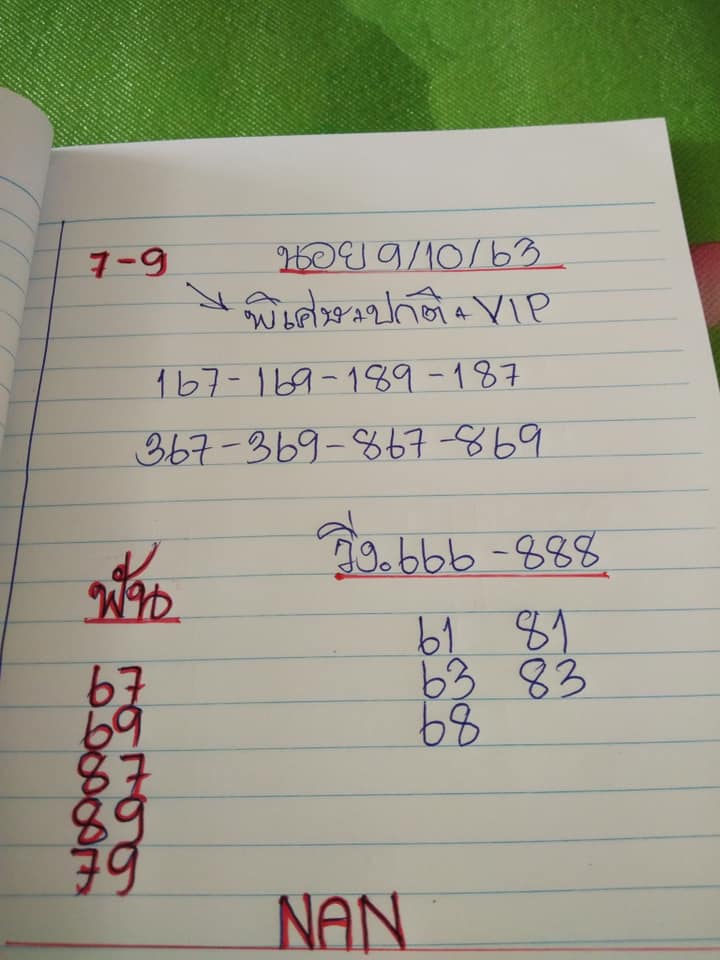 7-9
นอย 9/10/63
พิเศษ+ปกติ+VIP
167-169-189-187
367-369-867-869
ฟัน
67
69
87
89
79
วิ่ง.666-888
61 81
63 83
68
NAN